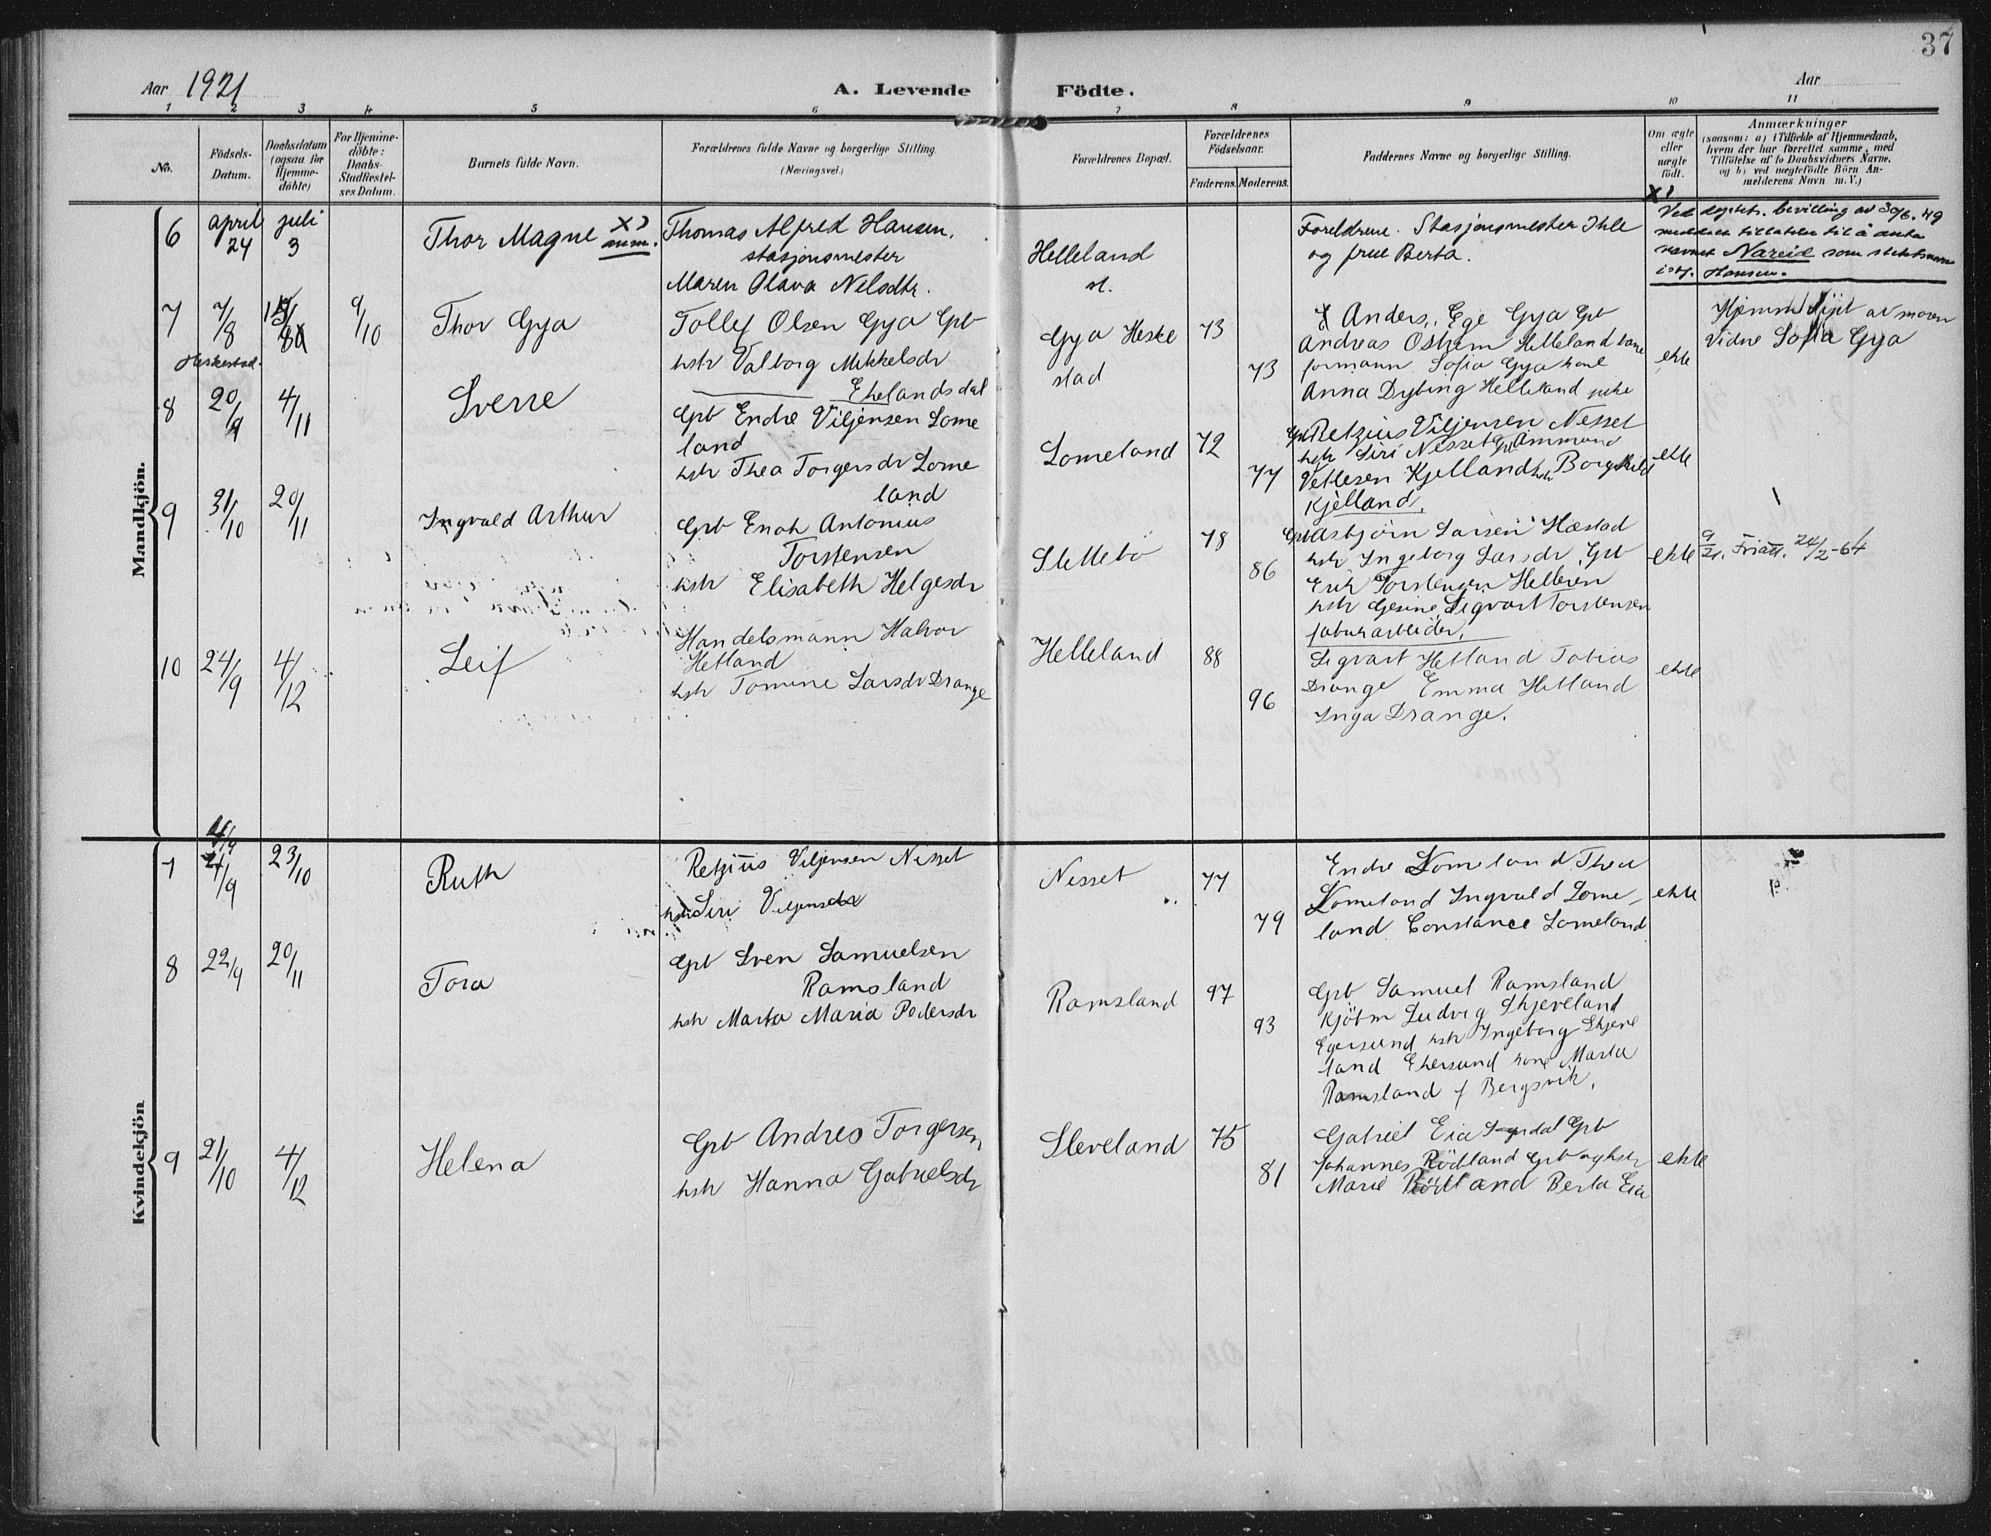 37
Aar 1921
A. Levende Födte.
Aar
1 2 3 4 5 6 7 8 9 10 11
No.
Födsels-
Datum.
Daabsdatum
(ogsaa for
Hjemme-
döbte)
For Hjemme-
döbte:
Daabs-
Stadfæstel-
ses Datum.
Barnets fulde Navn.
Forældrenes fulde Navne og borgerlige Stilling
(Næringsvei.)
Forældrenes Bopæl.
Forældrenes
Födselsaar.
Faderens. Moderens.
Faddernes Navne og borgerlige Stilling.
Om ægte
eller
uægte
födt.
Anmærkninger
(saasom: a) i Tilfælde af Hjemmedaab,
hvem der har forrettet samme, med
Tilföielse af to Daabsvidners Navne,
og b) ved uægtefödte Börn An-
melderens Navn m. V.)
Mandkjön.
6
april
24
juli
3
Thor Magne x)
anm.
Thomas Alfred Hansen,
stasjonsmester
Maren Olava Nilsdtr.
Helleland
st.
Foreldrene. Stasjonsmester Ihle
og frue Berta.
x)
Ved dept. bevilling av 30/6.49
meddelt tillatelse til å anta
navnet Nareid som slektsnavn
istf. Hansen.
7
7/8
Heskestad.
9/10
Thor Gya
Tollef Olsen Gya Grb
hstr Valborg Mikkelsdr
Ehelandsdal
Gya Heske
stad
73
73
Anders. Ege Gya Grb
Andreas Ostrem Helleland bane
formann Sofia Gya kone
Anna Dybing Helleland pike
ekte
Hjemmedöpt av moren
Vidne Sofia Gya
8
20/9
4/11
Sverre
Grb Endre Viljensen Lome
land
hstr Thea Torgersdr Lome
land
Lomeland
72
77
Grb Retzius Viljensen Nesset
hstr Siri Nesset Grb Ammund
Vetlesen Kjelland hstr Borghild
Kjelland.
ekte
9
31/10
20/11
Ingvald Arthur
Grb Enok Antonius
Torstensen
hstr Elisabeth Helgesdr
Slettebö
78
86
Grb Asbjörn Larsen Hæstad
hstr Ingeborg Larsdr, Grb
Erik Torstensen Helleren
hstr Gesine Sigvart Torstensen
faburarbeider.
ekte
9/21. Friatt. 24/2-64
10
24/9
4/12
Leif
Handelsmann Halvor
Hetland
hstr Tomine Larsdr Drange
Helleland
88
96
Sigvart Hetland Tobias
Drange Emma Hetland
Inga Drange.
ekte
Kvindekjön
7
21/9
23/10
Ruth
Retzius Viljensen Nesset
hstr Siri Viljensdr
Nesset
77
79
Endre Lomeland Thea
Lomeland Ingvald Lome-
land Constance Lomeland
ekte
8
22/9
20/11
Tora
Grb Sven Samuelsen
Ramsland
hstr Marta Maria Pedersdr
Ramsland
97
93
Grb Samuel Ramsland
Kjöbm Ludvig Skjeveland
Egersund hstr Ingeborg Skjeve
land Ekersund kone Marta
Ramsland f Bergsvik.
9
21/10
4/12
Helena
Grb Andres Torgersen
hstr Hanna Gabrielsdr
Sleveland
75
81
Gabriel Eia Grb
Johannes Rödland Grb og hstr
Marie Rödland Berta Eia
ekte